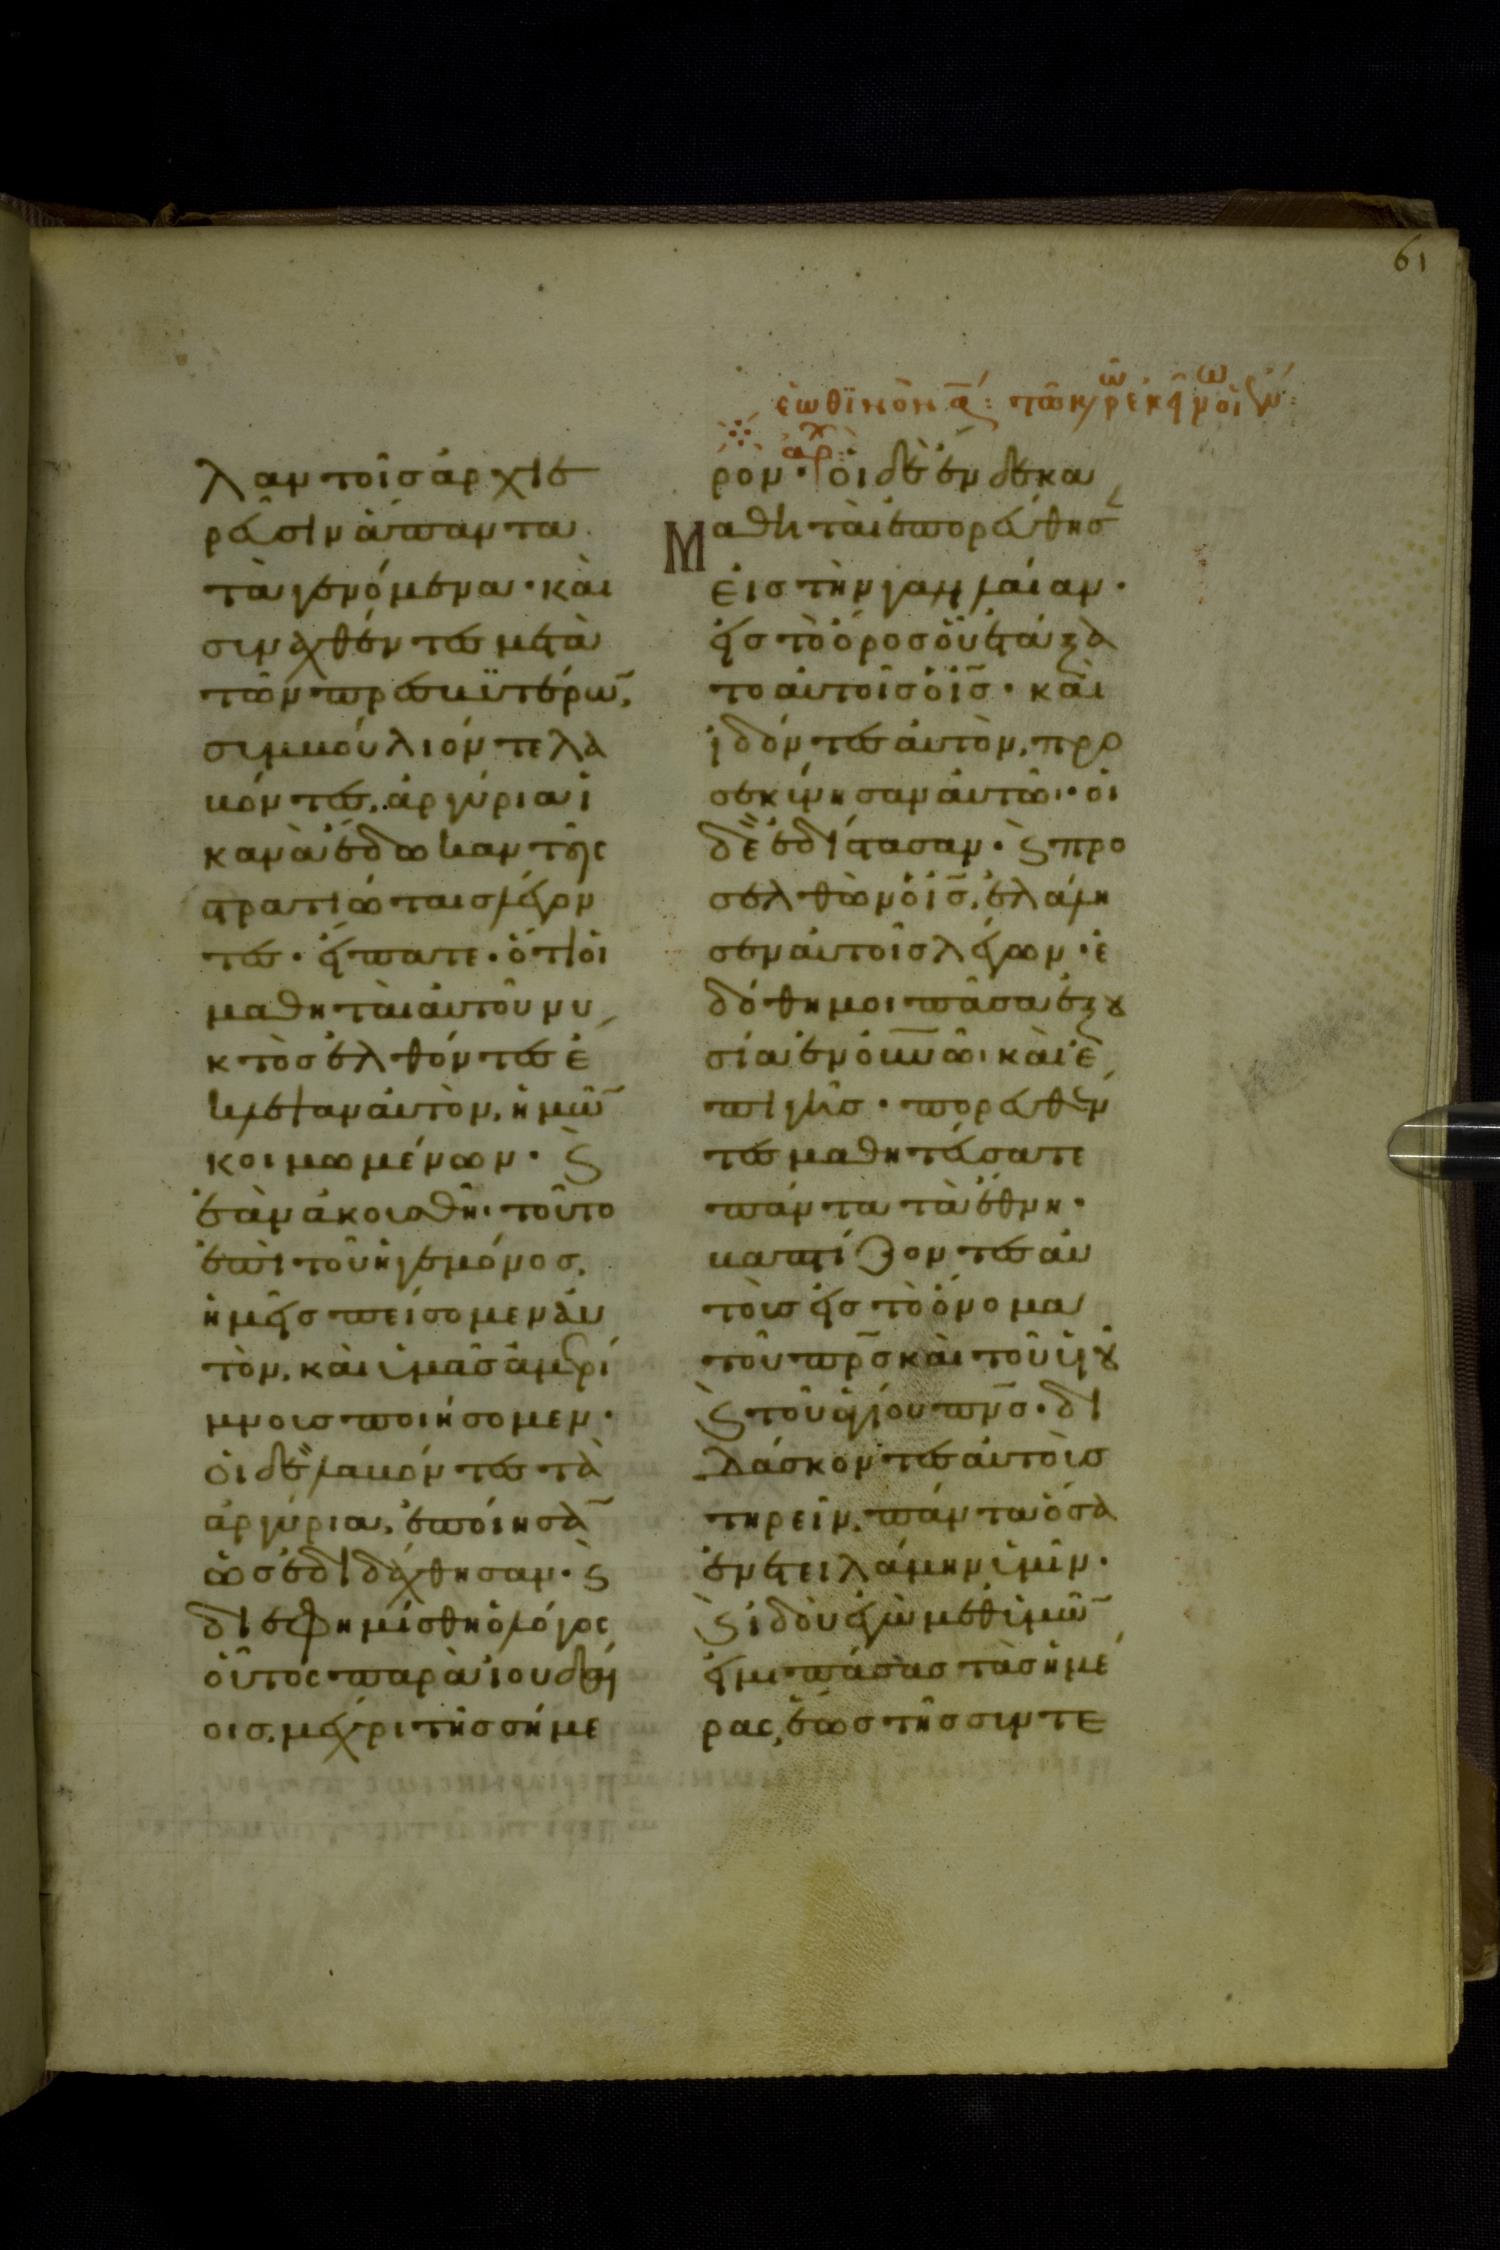 61
ἑωθϊνὸν α΄:
ἀρχ:
λαν τοῖς ἀρχιε
ρεύσιν ἅπαντα
τὰ γενόμενα· καὶ
συναχθέντες μετὰ
τῶν πρεσβϋτέρω̄,
συμβούλιόν τε λα
βόντες, ἀργύρια ἱ
κανὰ ἔδωκαν τοῖς
στρατιώταις λέγον
τες· εἴπατε· ὅτι οἱ
μαθηταὶ αὐτοῦ νυ
κτὸς ἐλθόντες ἔ
κλεψαν αὐτὸν, ἡμῶ̄
κοιμωμένων· ϗ
ἐὰν ἀκουσθῆ· τοῦτο
ἐπὶ τοῦ ἡγεμόνος,
ἡμεῖς πείσομεν αὐ
τὸν, καὶ ὑμᾶς ἀμερί
μνους ποιήσομεν·
οἱ δὲ λαβόντες τὰ
ἀργύρια, ἐποίησᾱ
ὡς ἐδιδάχθησαν· ϗ
διεφημίσθη ὁ λόγος
οὗτος παρὰ ἰουδαί
οις, μέχρι τῆς σήμε
ρον· οἱ δὲ ἕνδεκα
Μαθηταὶ ἐπορεύθησ
εἰς τὴν γαλιλαίαν·
εἰς τὸ ὄρος οὗ ἐτάξα
το αὐτοῖς ὁ ἰ̄ς̄· καὶ
ἰδόντες αὐτὸν, προ
σεκύνησαν αὐτῶ· οἱ
δὲ ἐδίστασαν· ϗ προ
σελθὼν ὁ ἰ̄ς̄, ἐλάλη
σεν αὐτοῖς λέγων· ἐ
δόθη μοι πᾶσα ἐξου
σία ἐν ο̄ῡν̄ω̄· καὶ ἐ
πὶ γῆς· πορευθέν
τες μαθητεύσατε
πάντα τὰ ἔθνη·
βαπτίζοντες αὐ
τοὺς εἰς τὸ ὄνομα
τοῦ π̄ρ̄ς̄ καὶ τοῦ υἱοῦ
ϗ τοῦ ἁγίου π̄ν̄ς̄· δι
δάσκοντες αὐτοὺς
τηρεῖν, πάντα ὅσα
ἐνετειλάμην ὑμῖν·
ϗ ἰδοὺ ἐγὼ μεθ ὑμῶ̄
εἰμι πάσας τὰς ἡμέ
ρας, ἕως τῆς συντε